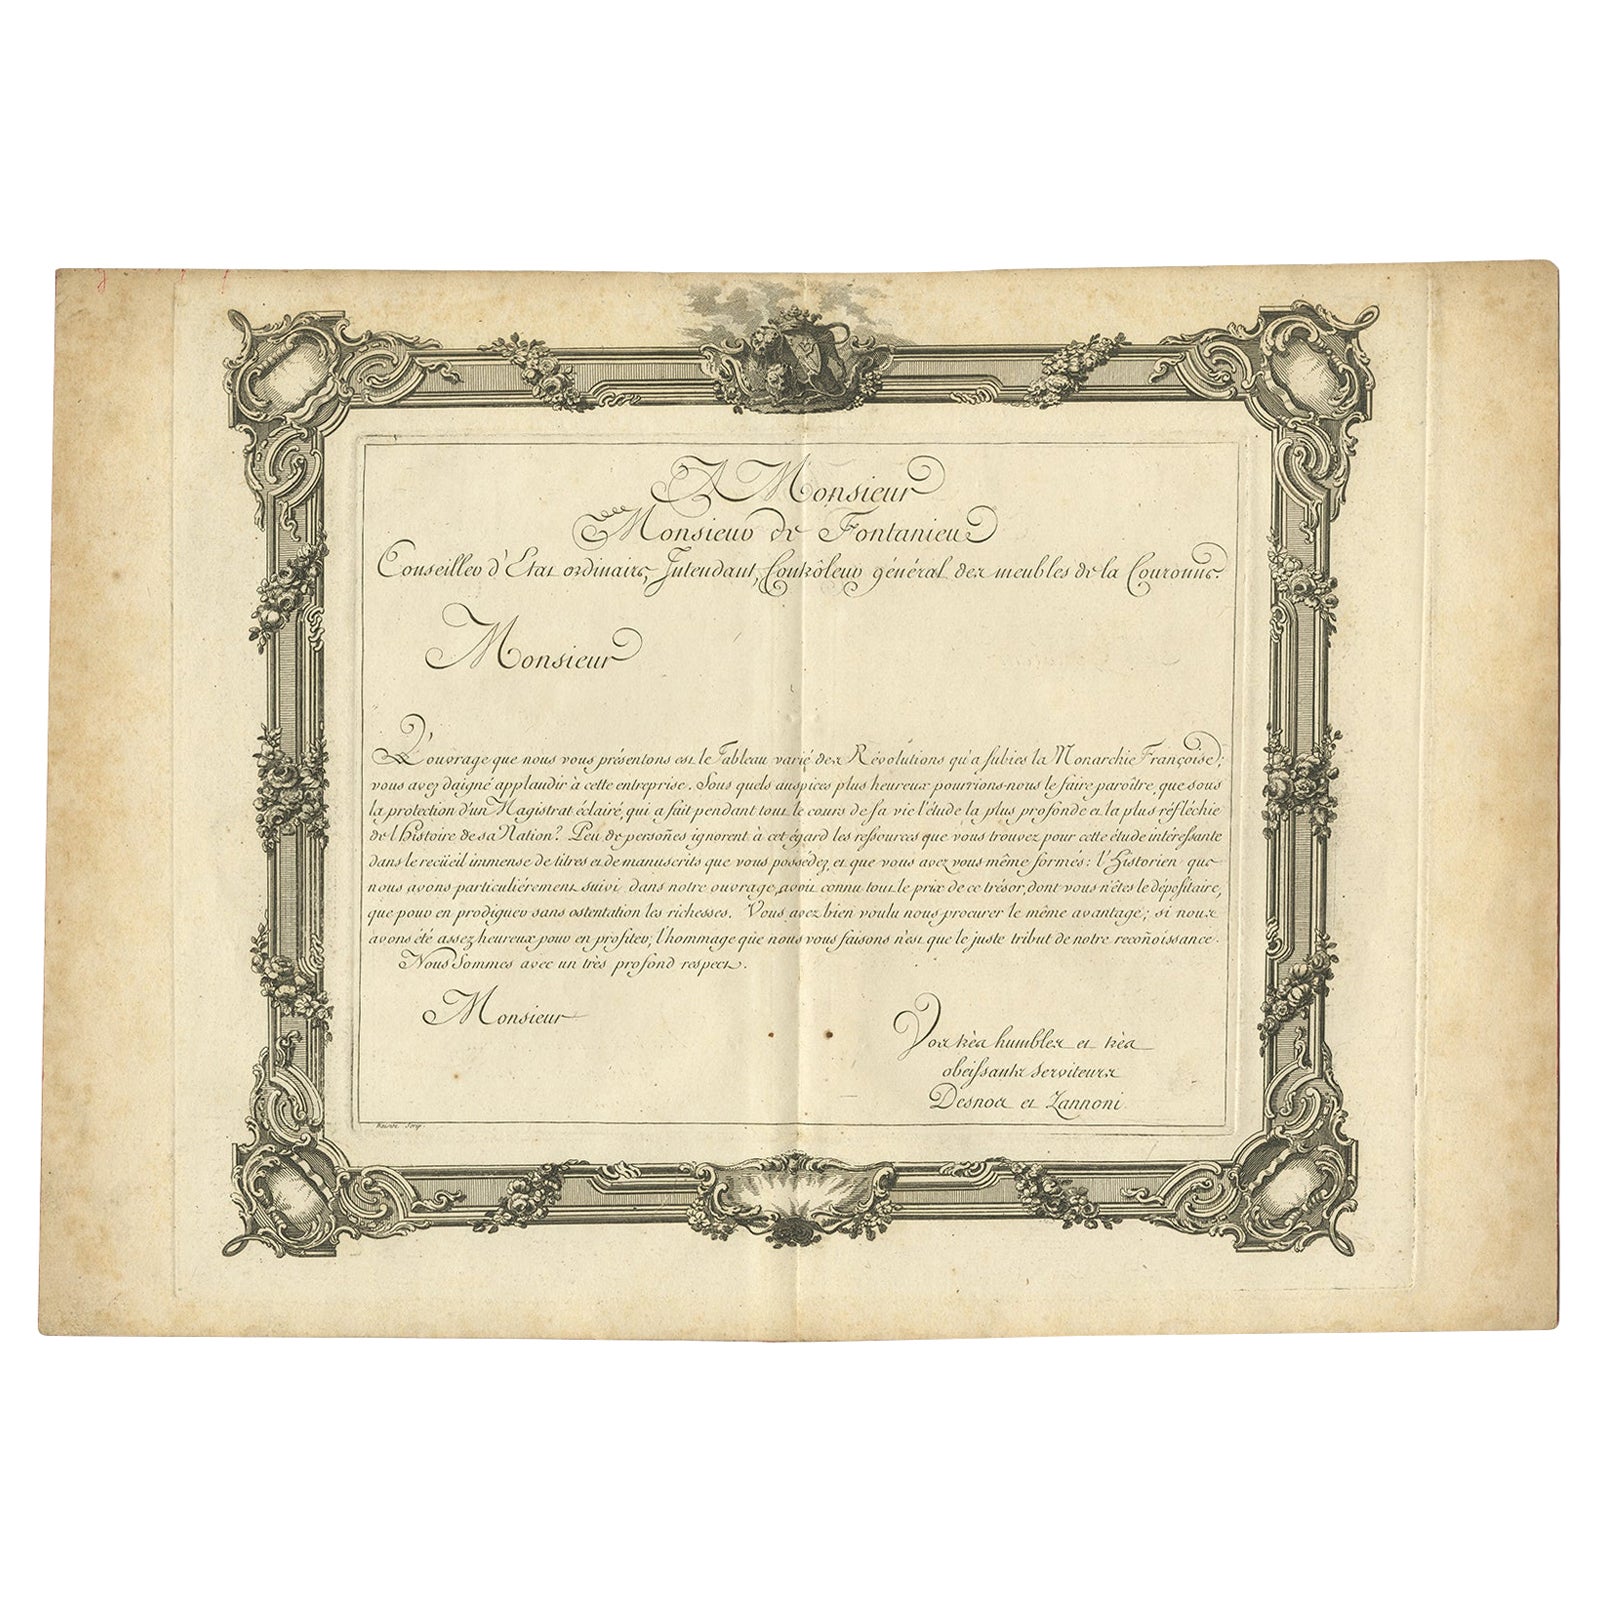 A Monsieur
Monsieur de Fontanieu
Conseiller d'Etat ordinaire, Intendant, Contrôleur général des meubles de la Couronne.
Monsieur
L'ouvrage que nous vous présentons est le Tableau varié des Révolutions qu'a subies la Monarchie Françoise;
vous avez daigné applaudir à cette entreprise. Sous quels auspices plus heureux pourrions-nous le faire paroître, que sous
la protection d'un Magistrat éclairé, qui a fait pendant tout le cours de sa vie l'étude la plus profonde et la plus réfléchie
de l'histoire de sa Nation? Peu de persoñes ignorent à cet égard les ressources que vous trouvez pour cette étude intéressante
dans le recüeil immense de titres et de manuscrits que vous possédez, et que vous avez vous même formés: l'Historien que
nous avons particuliérement suivi dans notre ouvrage, avoit connu tout le prix de ce trésor, dont vous n'êtes le dépositaire,
que pour en prodiguer sans ostentation les richesses. Vous avez bien voulu nous procurer le même avantage; si nous
avons été assez heureux pour en profiter, l'hommage que nous vous faisons n'est que le juste tribut de notre recoñoissance.
Nous Sommes avec un très profond respect.
Monsieur
Vos très humbles et très
obeissants serviteurs
Desnos et Zannoni.
Sculp.